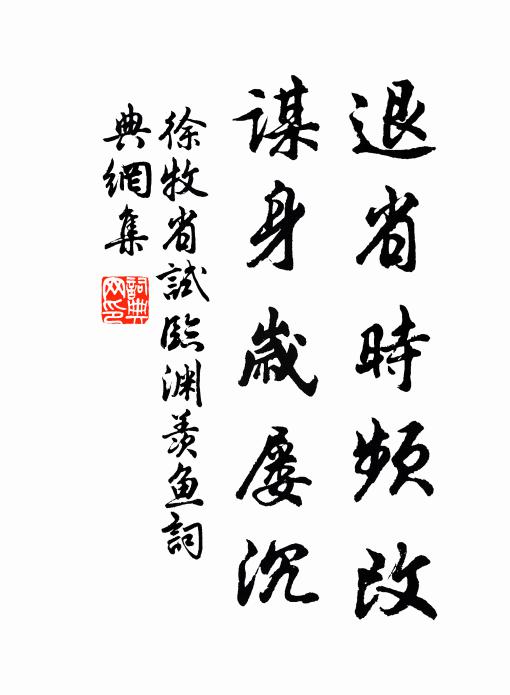 退省時頻改
謀身歲屢沉
徐牧省試臨淵羨魚詞
典網集
詞典
网印